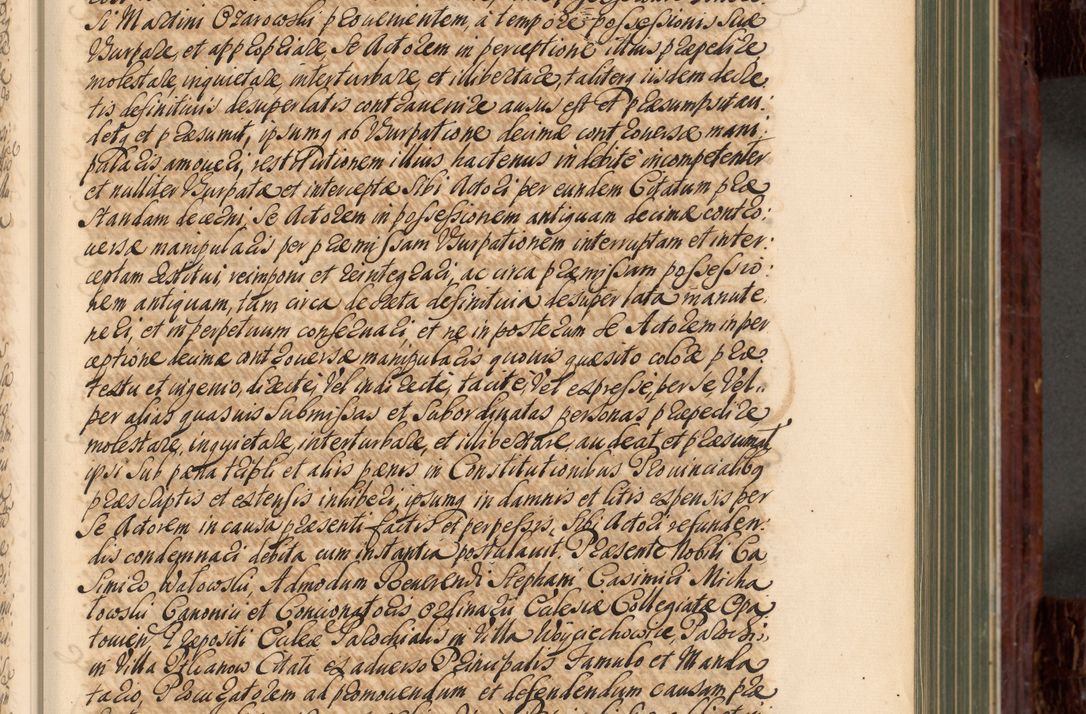 Si Martini Ozarowski provenientem, a tempore possessionis suæ
Vsurpare, et appropriare se Actorem in perceptione illius præpedire
molestare, inquietare, interturbare, et illibertare, taliterq iisdem decre
tis definitivis desuper latis contravenire ausus est et præsumpsit au
detq et præsumit, ipsumq ab Vsurpatione decimæ controversæ mani
pularis amoveri, restitutionem illius hactenus indebite incompetenter
et nulliter Vsurpatæ et interceptæ Sibi Actori per eundem Citatum præ
standam decerni, Se Actorem in possessionem antiquam decimæ contro:
versæ manipularis per præmissam Vsurpationem interruptam et inter:
ceptam restitui, reimponi et reintegrari, ac circa præmissam possessio:
nem antiquam, tam circa decreta definitiva desuper lata manute
neri, et in perpetuum conservari, et ne in posterum se Actorem in per
ceptione decimæ controversæ manipularis quovis quæsito colore præ
textu et ingenio, directe, Vel indirecte, tacite, Vel expresse, per se, Vel
per alias quasvis submissas et subordinatas personas præpedire
molestare, inquietare, interturbare, et illibertare, audeat, et præsumat
ipsi sub pæna tripli et aliis pænis in Constitutionibus Provincialibq
præscriptis et extensis inhiberi, ipsumq in damnis et litis expensis per
Se Actorem in causa præsenti factis et perpessis, Sibi Actori refunden:
dis condemnari debita cum instantia postulavit. Præsente Nobili Ca
Simiro Walowski, Admodum Reverendi Stephani Casimiri Micha
lowski Canonici et Concionatoris Ordinarii Ecclesiæ Collegiatæ Opa
tovien, Præpositi Ecclæ Parochialis in Villa Woyciechowice Parochi,
in Villa Stianow Citati ex adverso Principalis Famulo et Manda
tario, Procuratorem ad promovendum et defendendum causam præ